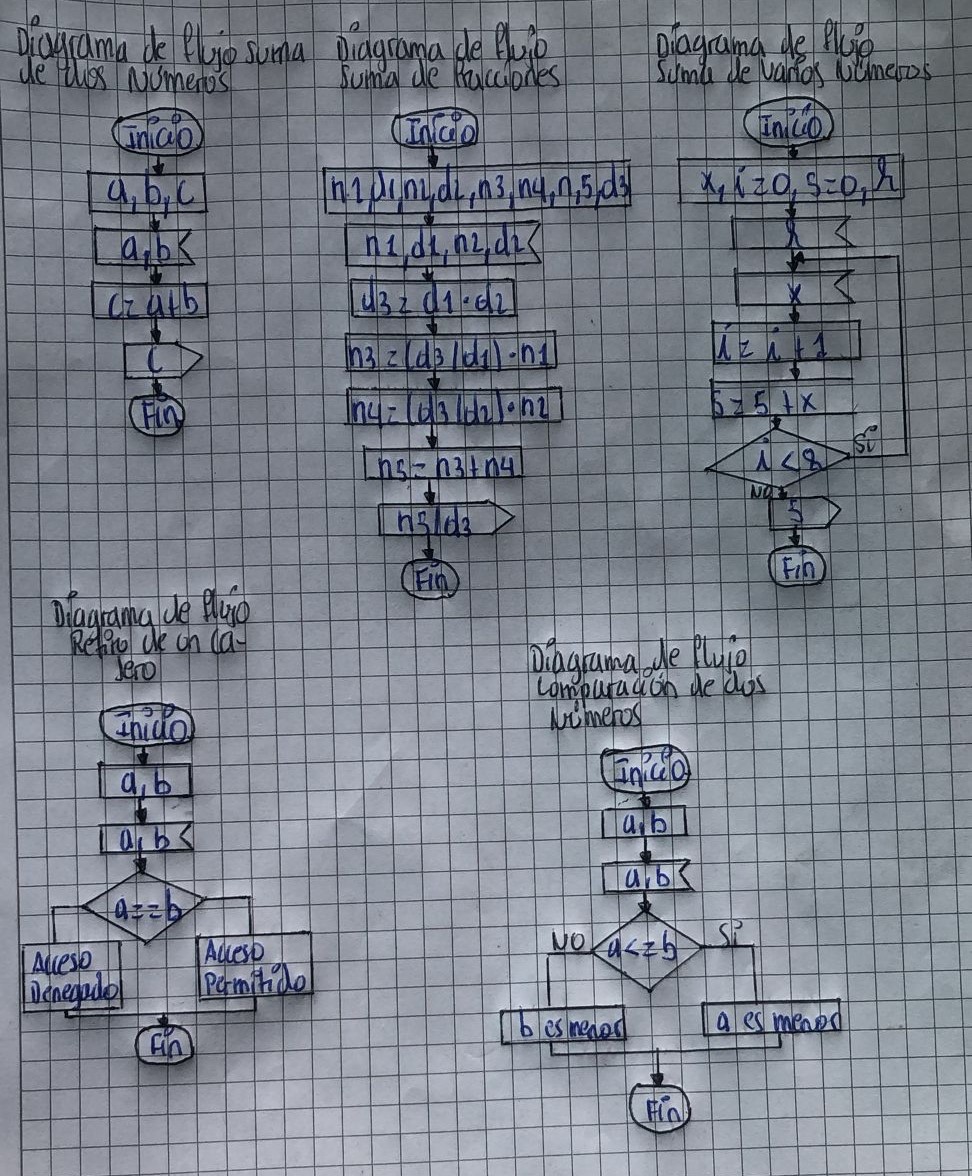 Diagrama de flujo suma
de dos Números
Inicio
a,b,c
a,b
c=a+b
c
Fin
Diagrama de flujo
Suma de fracciones
Inicio
n1,d1,n2,d2,n3,n4,n,5,d3
n1,d1,n2,d2
d3=d1·d2
n3=(d3/d1)·n1
n4=(d3/d2)·n2
n5=n3+n4
n5/d3
Fin
Diagrama de flujo
Suma de varios Números
Inicio
x, i=0, s=0,
x
i=i+1
s=s+x
i<
Sí
NO
s
Fin
Diagrama de flujo
Retiro de un Ca-
jero
Inicio
a,b
a,b
a==b
Acceso
Denegado
Acceso
Permitido
Fin
Diagrama de flujo
Comparación de dos
Números
Inicio
a,b
a,b
NO
a<=b
Sí
b es menor
a es menor
Fin